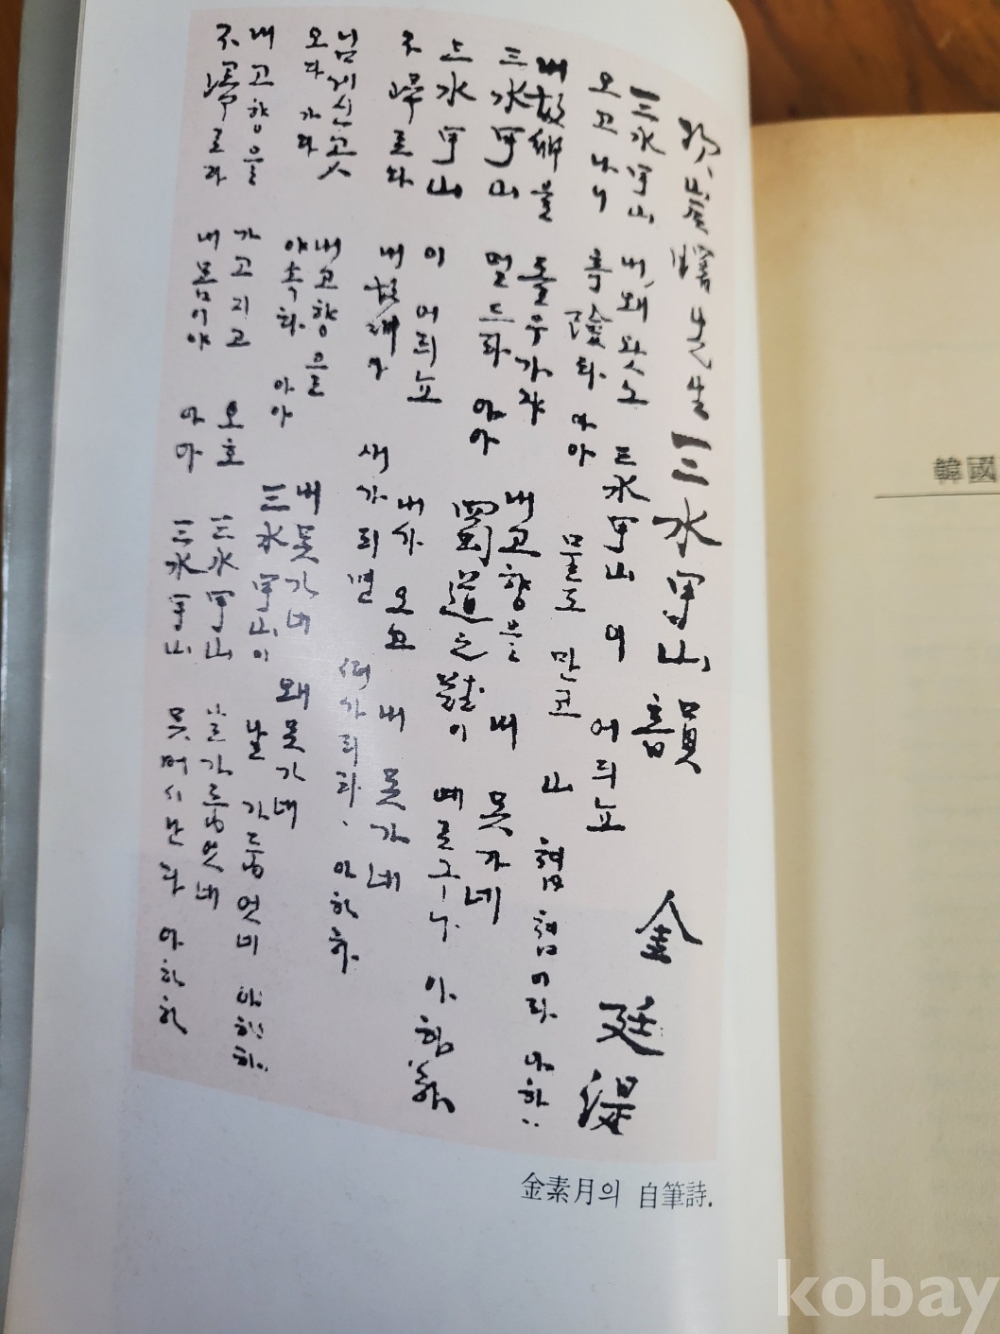 次岸曙先生三水甲山韻 金廷湜
三水甲山 내 왜 왓노 三水甲山이 어듸뇨
오고나니 奇險타 아아 물도 만코 山 첩첩이라 아하하
내 故鄕을 돌우가쟈 내 고향을 내 못가네
三水甲山 멀드라 아아 蜀道之難이 예로구나 아하하
三水甲山이 어듸뇨 내가 오고 내 못가네
不歸로다 내 故鄕아 새가 되면 떠가리라 아하하
님 게신 곳 내 고향을 내 못가네 왜 못가네
오다 가다 야속타 아아 三水甲山이 날 가둡엇네 아하하
내 고향을 가고지고 오호 三水甲山 날 가둡엇네
不歸로다 내 몸이야 아아 三水甲山 못 버서난다 아하하
金素月의 自筆詩.
韓國
kobay